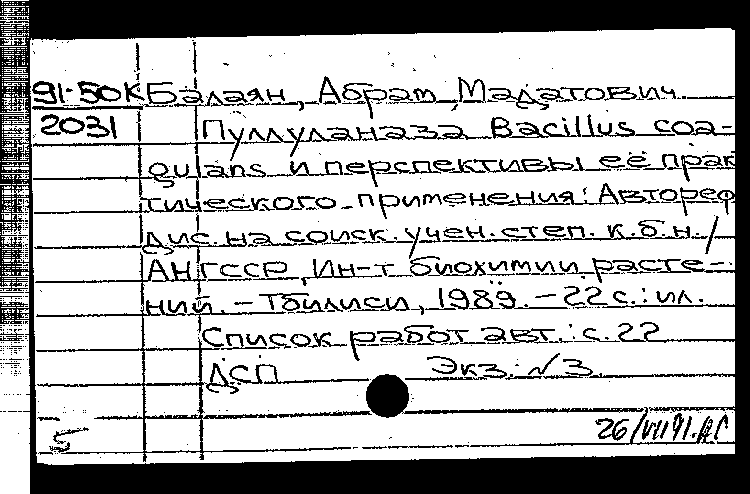 91-50К Балаян, Абрам Мадатович
2031 Пуллуланаза Bacillus coa-
gulans и перспективы её прак
тического применения: Автореф
дис. на соиск. учен. степ. к.б.н. /
АН ГССР, Ин-т биохимии расте-
ний. – Тбилиси, 1989. – 22 с.: ил.
Список работ авт.: с. 22
ДСП Экз. №3.
5 26/VII91.